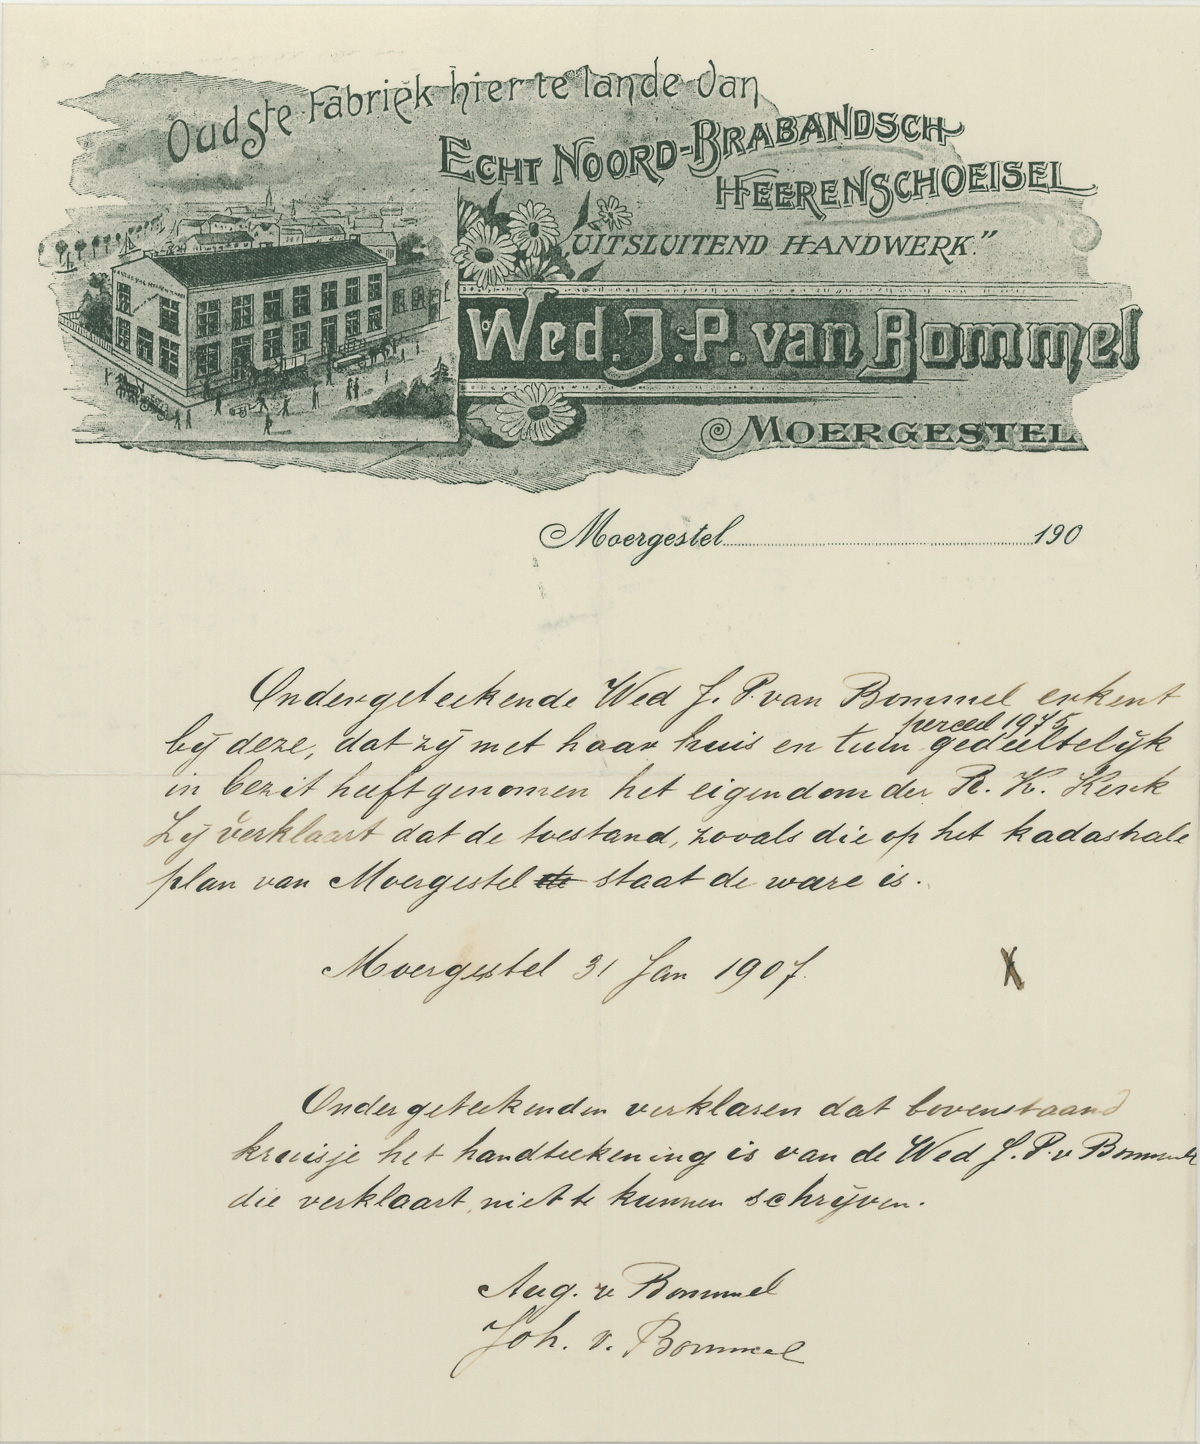 Oudste Fabriek hier te lande van
Echt Noord-Brabandsch
Heerenschoeisel
"Uitsluitend Handwerk."
Wed. J.P. van Bommel
Moergestel
Moergestel 190
Ondergeteekende Wed J. P. van Bommel erkent
perceel 1975
bij deze, dat zij met haar huis en tuin gedeeltelijk
in bezit heeft genomen het eigendom der R. K. Kerk
Zij verklaart dat de toestand, zooals die op het kadastrale
plan van Moergestel staat de ware is.
Moergestel 31 Jan 1907.
X
Ondergeteekenden verklaren dat bovenstaand
kruisje het handteekening is van de Wed J. P. v Bommel
die verklaart niet te kunnen schrijven.
Aug. v Bommel
Joh. v. Bommel